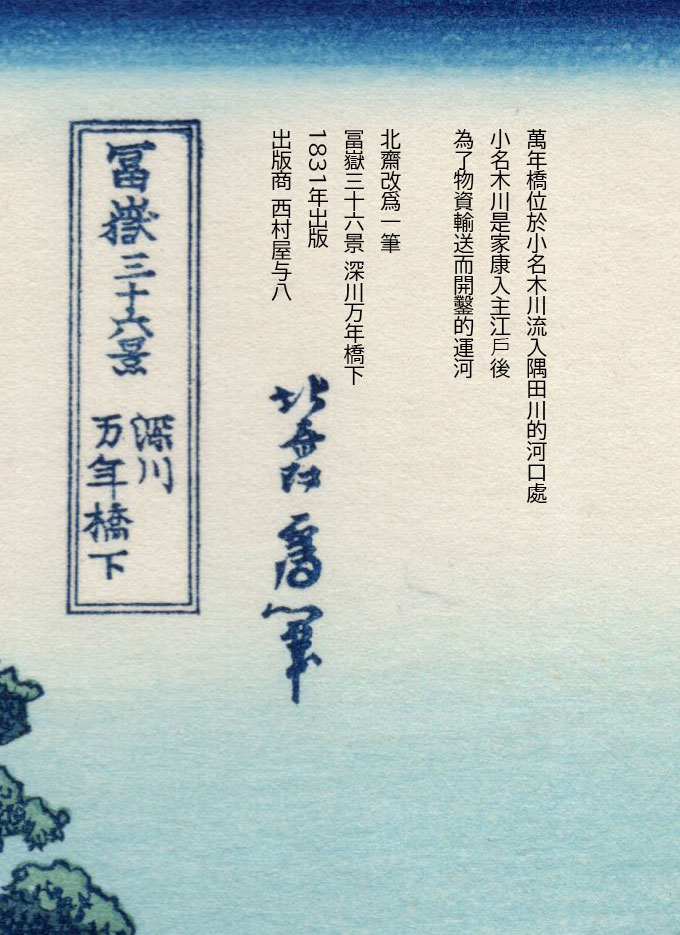 萬年橋位於小名木川流入隅田川的河口處
小名木川是家康入主江戶後
為了物資輸送而開鑿的運河
北齋改爲一筆
冨嶽三十六景 深川万年橋下
1831年出版
出版商 西村屋与八
北斎改為一筆
冨嶽三十六景
深川
万年橋下